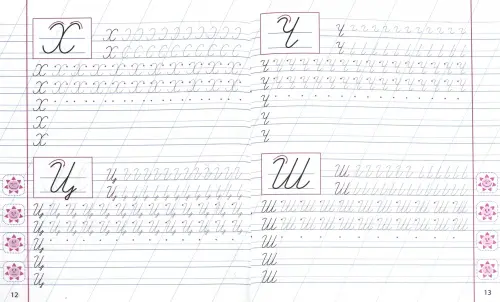 Х
Х
Х
Х Х Х Х Х Х Х Х Х Х Х
Х Х Х Х Х Х Х Х Х Х Х
Х
Х
Х
Ц
Ц
Ц
Ц Ц Ц Ц Ц Ц Ц Ц Ц Ц Ц Ц
Ц Ц Ц Ц Ц Ц Ц Ц Ц Ц Ц Ц
Ц
Ц
Ц
12
Ч
Ч
Ч
Ч Ч Ч Ч Ч Ч Ч Ч Ч Ч Ч Ч Ч Ч Ч
Ч Ч Ч Ч Ч Ч Ч Ч Ч Ч Ч Ч Ч Ч Ч
Ч
Ч
Ч
Ш
Ш
Ш
Ш Ш Ш Ш Ш Ш Ш Ш Ш
Ш Ш Ш Ш Ш Ш Ш Ш Ш
Ш
Ш
Ш
13